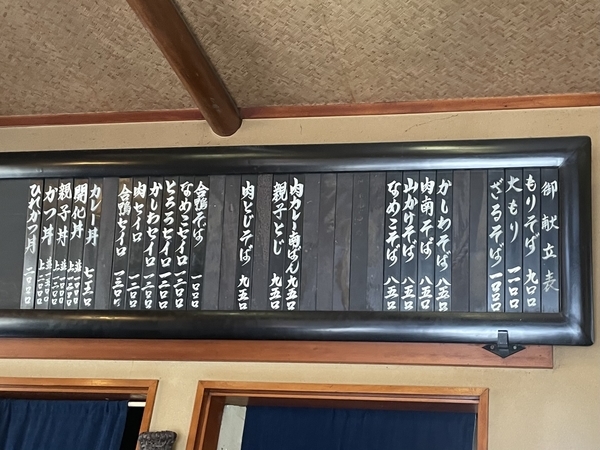 御献立表
もりそば 九〇〇
大もり 一一〇〇
ざるそば 一〇〇〇
かしわそば 八五〇
肉南そば 八五〇
山かけそば 八五〇
なめこそば 八五〇
肉カレー南ばん 九五〇
親子とじ 九五〇
肉とじそば 九五〇
合鴨そば 一一〇〇
なめこセイロ 一一〇〇
とろろセイロ 一一〇〇
かしわセイロ 一一〇〇
肉セイロ 一一〇〇
合鴨セイロ 一三〇〇
カレー丼 七五〇
開化丼
親子丼
かつ丼
ひれかつ丼